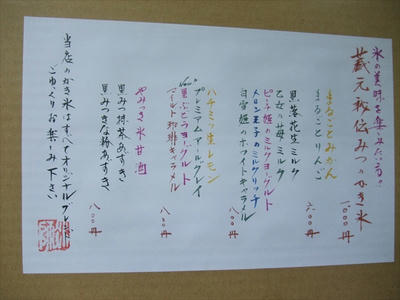 氷の美味を楽しみたい方へ
蔵元秘伝みつのかき氷
まるごとみかん 一,〇〇〇円
まるごとりんご
黒落花生ミルク 六〇〇円
乙女の苺ミルク
ピーチ姫のミルクヨーグルト
メロン王子のミルクリッチ
白雪姫のホワイトキャラメル
ハチミツ生レモン 八〇〇円
プレミアムアールグレイ
黒ぶどうヨーグルト
ビール珈琲キャラメル 八〇〇円
やみつき氷甘酒
黒みつ抹茶あずき
黒みつきな粉あずき 八〇〇円
当店のかき氷はすべてオリジナルブレンド
ごゆっくりお楽しみ下さい